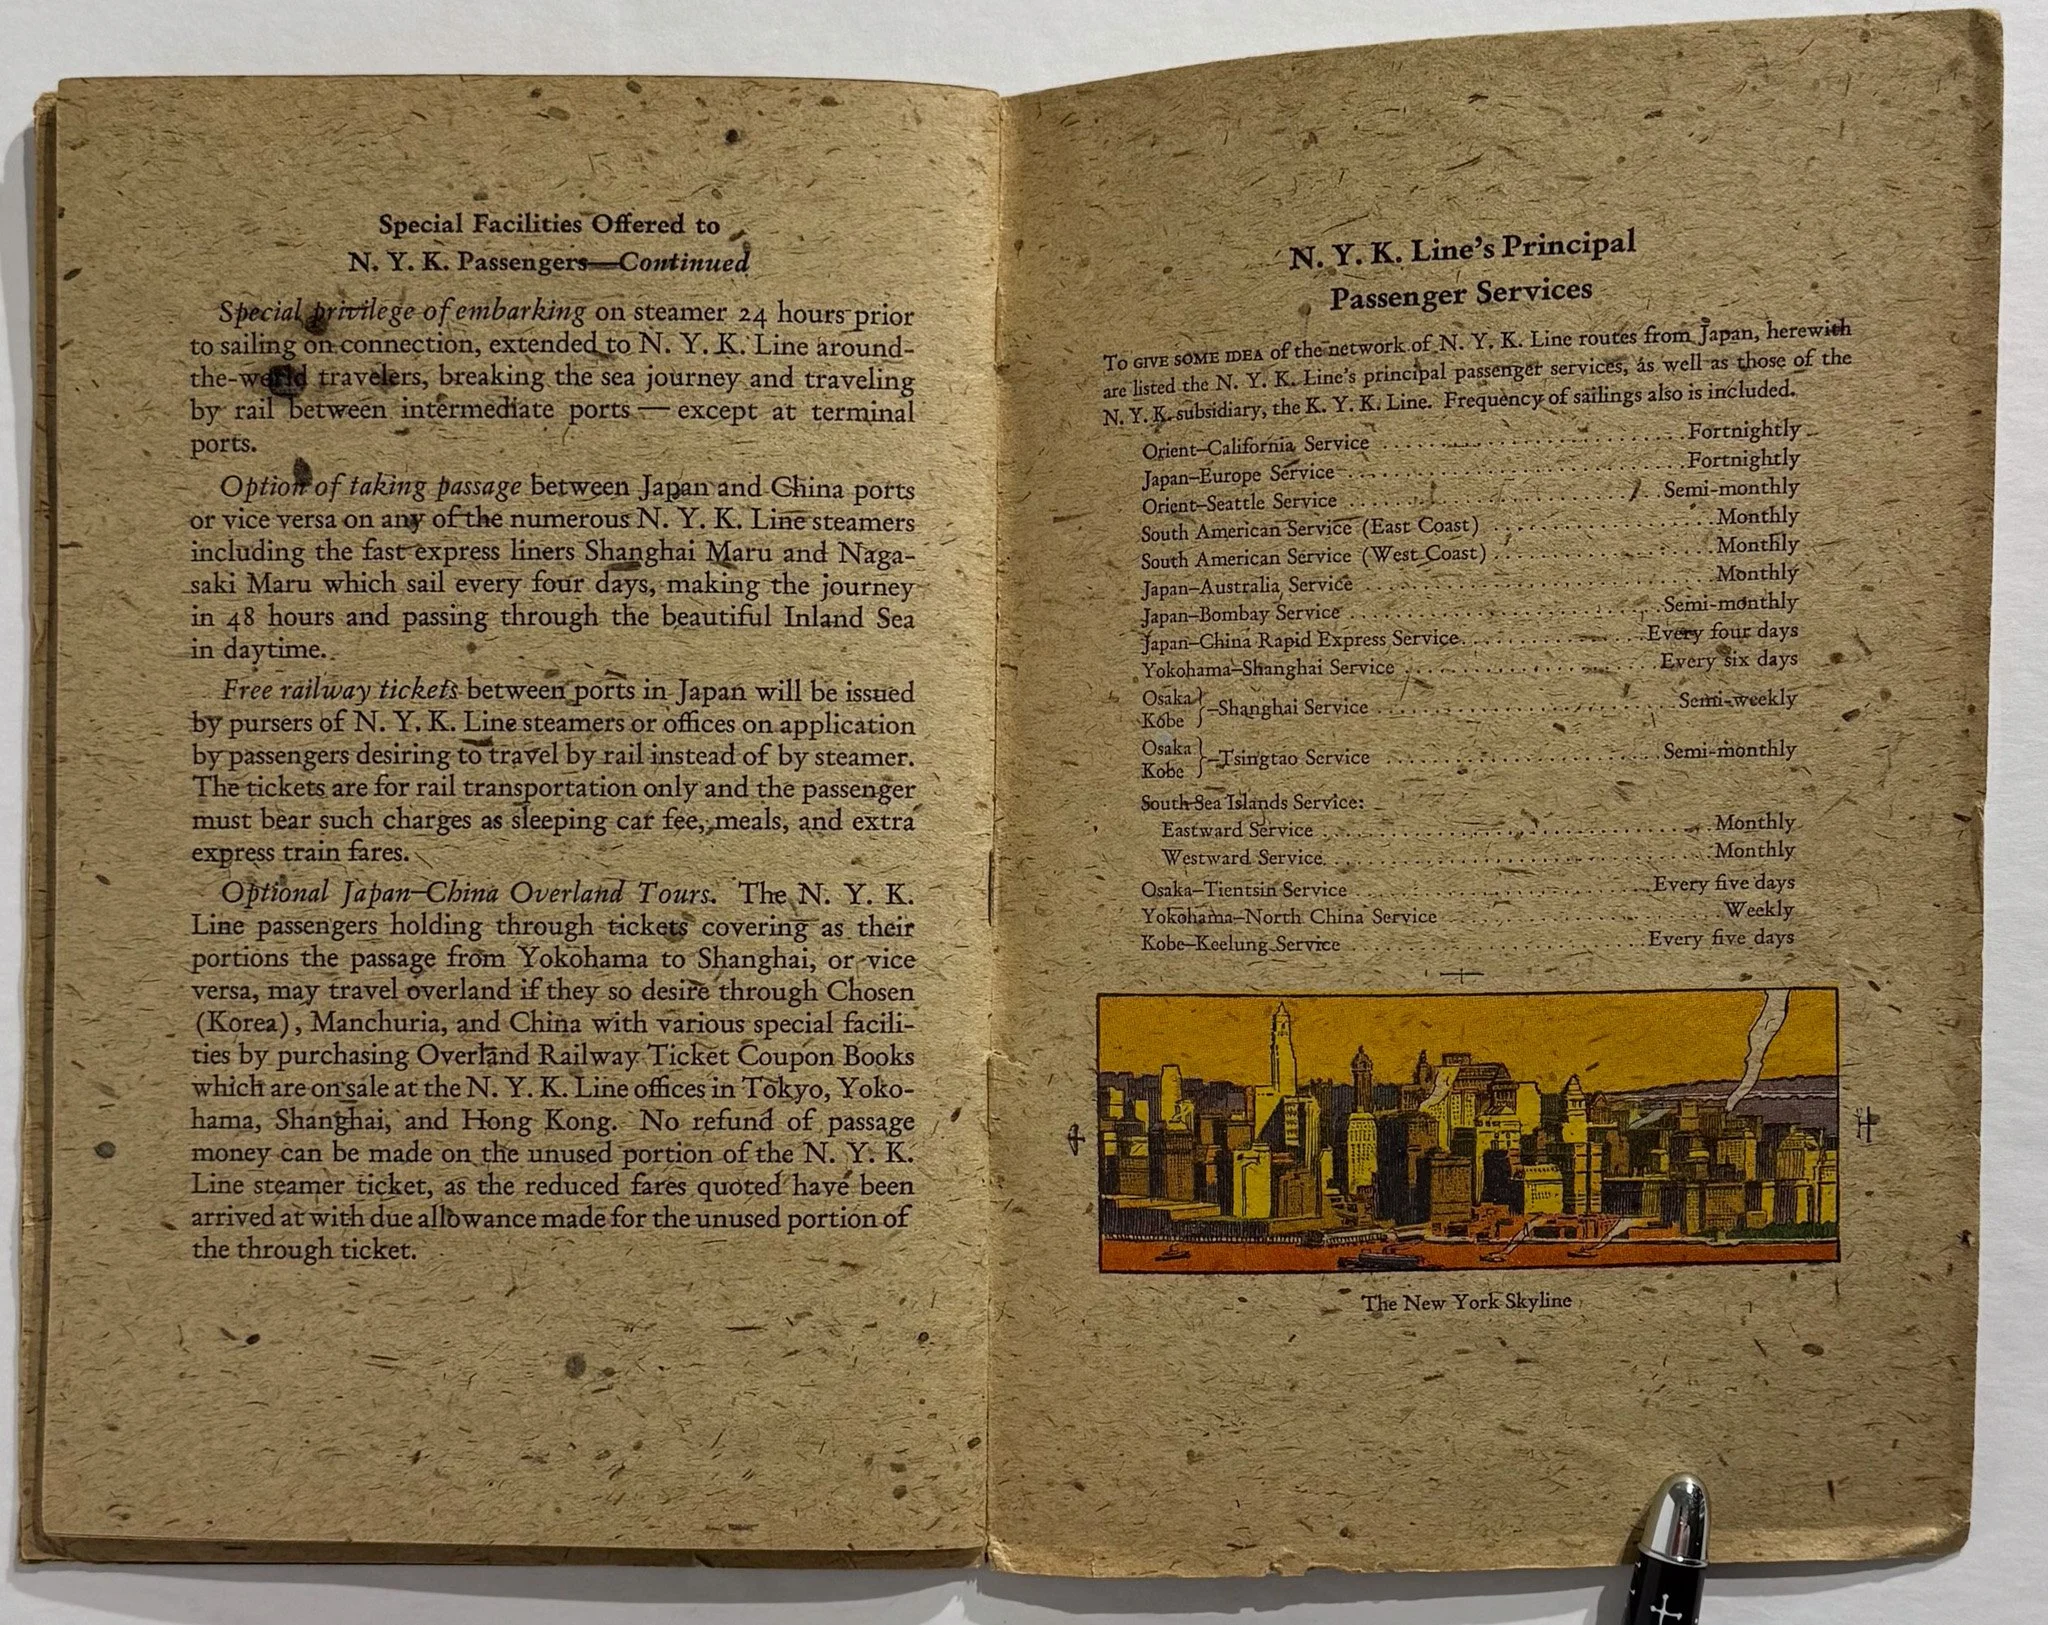 Special Facilities Offered to
N. Y. K. Passengers—Continued
Special privilege of embarking on steamer 24 hours prior
to sailing on connection, extended to N. Y. K. Line around-
the-world travelers, breaking the sea journey and traveling
by rail between intermediate ports — except at terminal
ports.
Option of taking passage between Japan and China ports
or vice versa on any of the numerous N. Y. K. Line steamers
including the fast express liners Shanghai Maru and Naga-
saki Maru which sail every four days, making the journey
in 48 hours and passing through the beautiful Inland Sea
in daytime.
Free railway tickets between ports in Japan will be issued
by pursers of N. Y. K. Line steamers or offices on application
by passengers desiring to travel by rail instead of by steamer.
The tickets are for rail transportation only and the passenger
must bear such charges as sleeping car fee, meals, and extra
express train fares.
Optional Japan–China Overland Tours. The N. Y. K.
Line passengers holding through tickets covering as their
portions the passage from Yokohama to Shanghai, or vice
versa, may travel overland if they so desire through Chosen
(Korea), Manchuria, and China with various special facili-
ties by purchasing Overland Railway Ticket Coupon Books
which are on sale at the N. Y. K. Line offices in Tokyo, Yoko-
hama, Shanghai, and Hong Kong. No refund of passage
money can be made on the unused portion of the N. Y. K.
Line steamer ticket, as the reduced fares quoted have been
arrived at with due allowance made for the unused portion of
the through ticket.
N. Y. K. Line's Principal
Passenger Services
TO GIVE SOME IDEA of the network of N. Y. K. Line routes from Japan, herewith
are listed the N. Y. K. Line's principal passenger services, as well as those of the
N. Y. K. subsidiary, the K. Y. K. Line. Frequency of sailings also is included.
Orient–California Service Fortnightly
Japan–Europe Service Fortnightly
Orient–Seattle Service Semi-monthly
South American Service (East Coast) Monthly
South American Service (West Coast) Monthly
Japan–Australia Service Monthly
Japan–Bombay Service Semi-monthly
Japan–China Rapid Express Service Every four days
Yokohama–Shanghai Service Every six days
Osaka
Kobe } –Shanghai Service Semi-weekly
Osaka
Kobe } –Tsingtao Service Semi-monthly
South Sea Islands Service:
Eastward Service Monthly
Westward Service Monthly
Osaka–Tientsin Service Every five days
Yokohama–North China Service Weekly
Kobe–Keelung Service Every five days
The New York Skyline